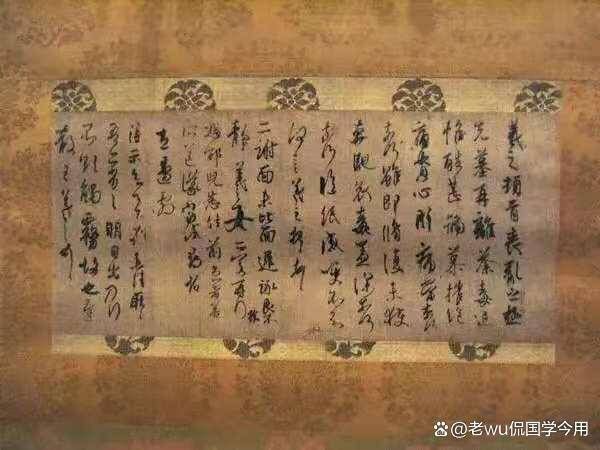 羲之頓首喪亂之極
先墓再離荼毒追
惟酷甚號慕摧絕
痛貫心肝痛當奈何
奈何雖即脩復未獲
奔馳哀毒益深奈何
奈何臨紙感哽不知
何言羲之頓首頓首
二謝面未比面遲詠良不
靜羲之女愛再拜
想邵兒悉佳前患者善
所送議當試尋省
左邊劇
得示知足下猶未佳耿耿
吾亦劣劣明日出乃行
不欲觸霧故也遲
散王羲之頓首
@老wu侃国学今用